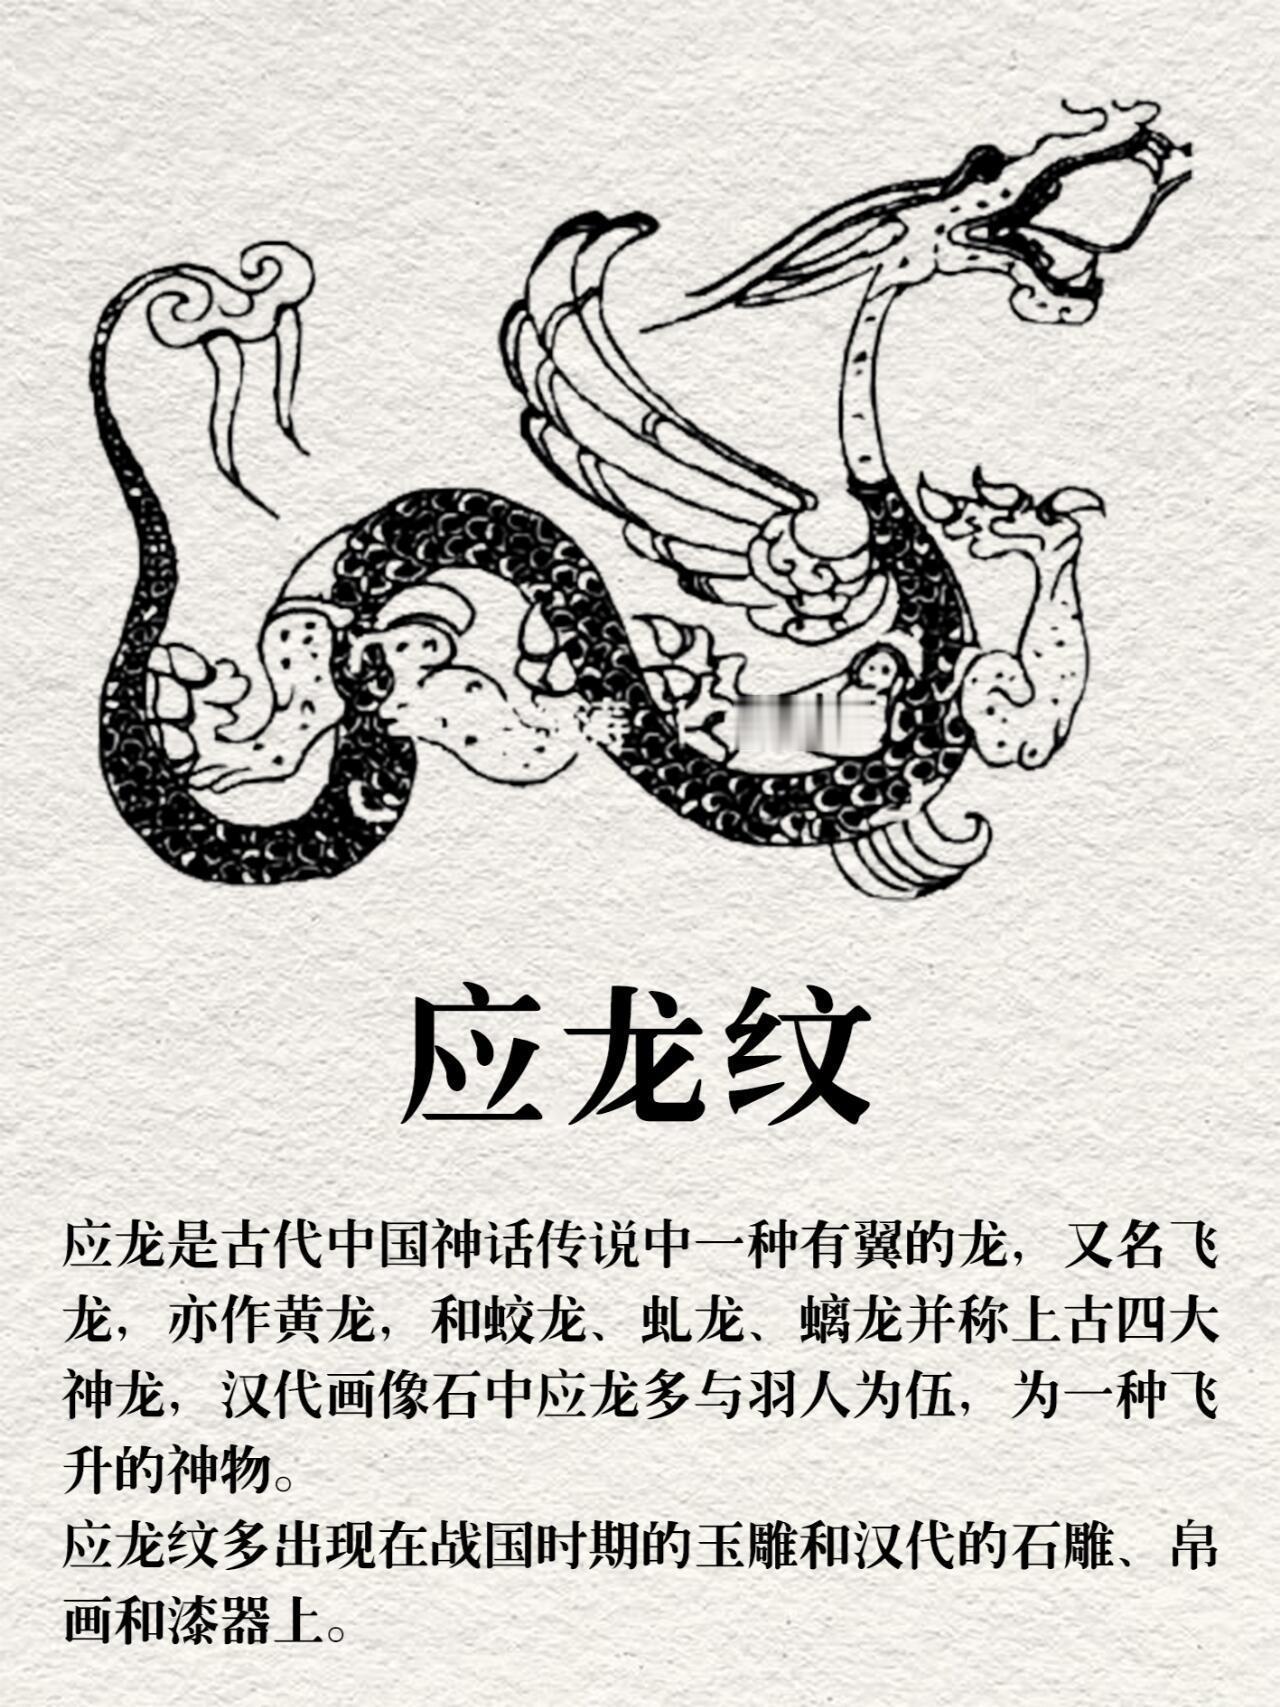 应龙纹
应龙是古代中国神话传说中一种有翼的龙，又名飞
龙，亦作黄龙，和蛟龙、虬龙、螭龙并称上古四大
神龙，汉代画像石中应龙多与羽人为伍，为一种飞
升的神物。
应龙纹多出现在战国时期的玉雕和汉代的石雕、帛
画和漆器上。